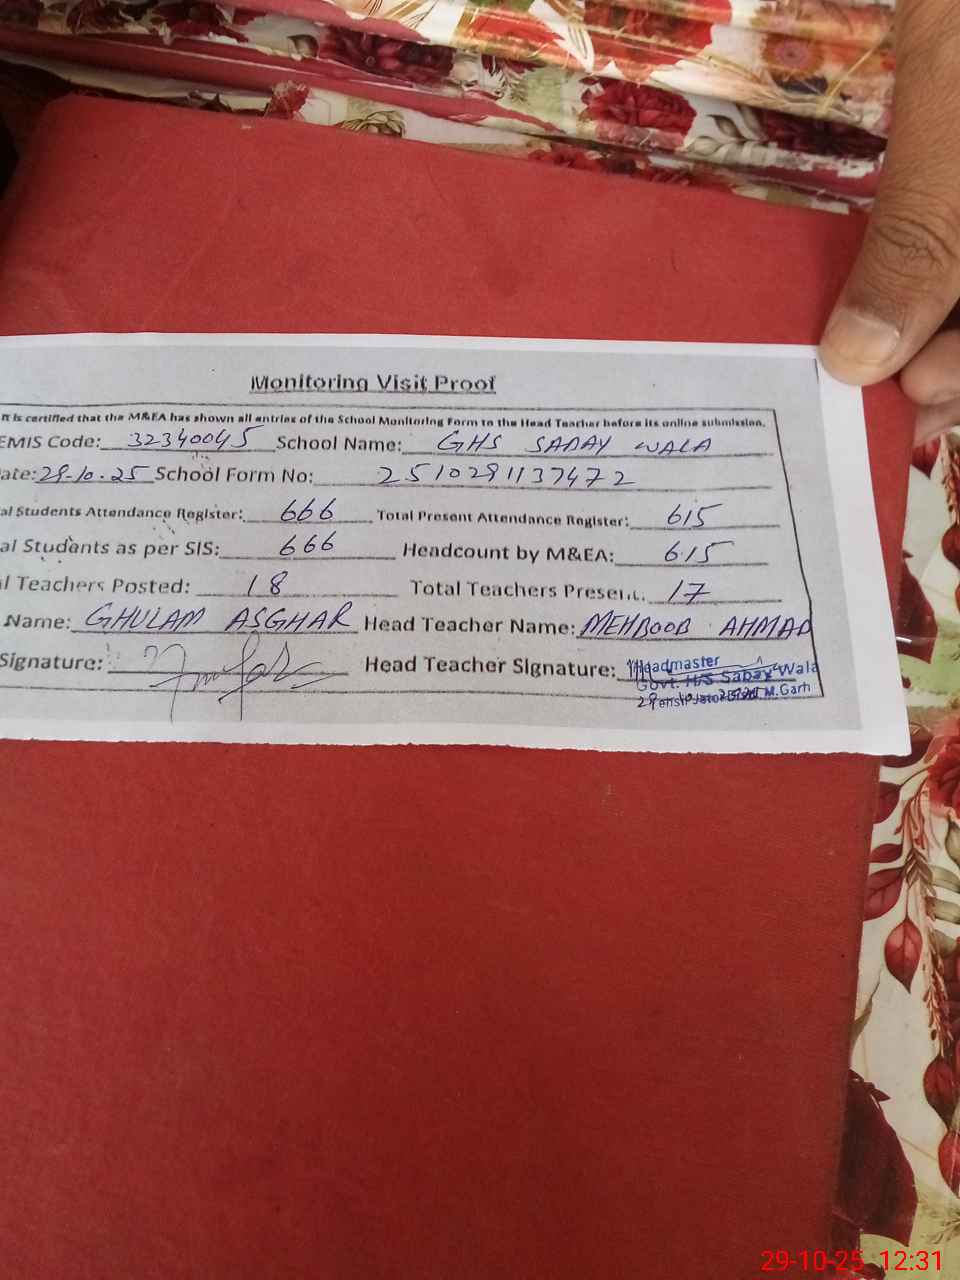 Monitoring Visit Proof
It is certified that the M&EA has shown all entries of the School Monitoring Form to the Head Teacher before its online submission.
EMIS Code: 32340045 School Name: GHS SABAY WALA
ate: 29-10-25 School Form No: 2510291137472
al Students Attendance Register: 666 Total Present Attendance Register: 615
al Students as per SIS: 666 Headcount by M&EA: 615
l Teachers Posted: 18 Total Teachers Present: 17
Name: GHULAM ASGHAR Head Teacher Name: MEHBOOB AHMAD
Signature: Head Teacher Signature:
Headmaster
Govt. H/S Sabay Wala
M.Garh
29-10-25 12:31